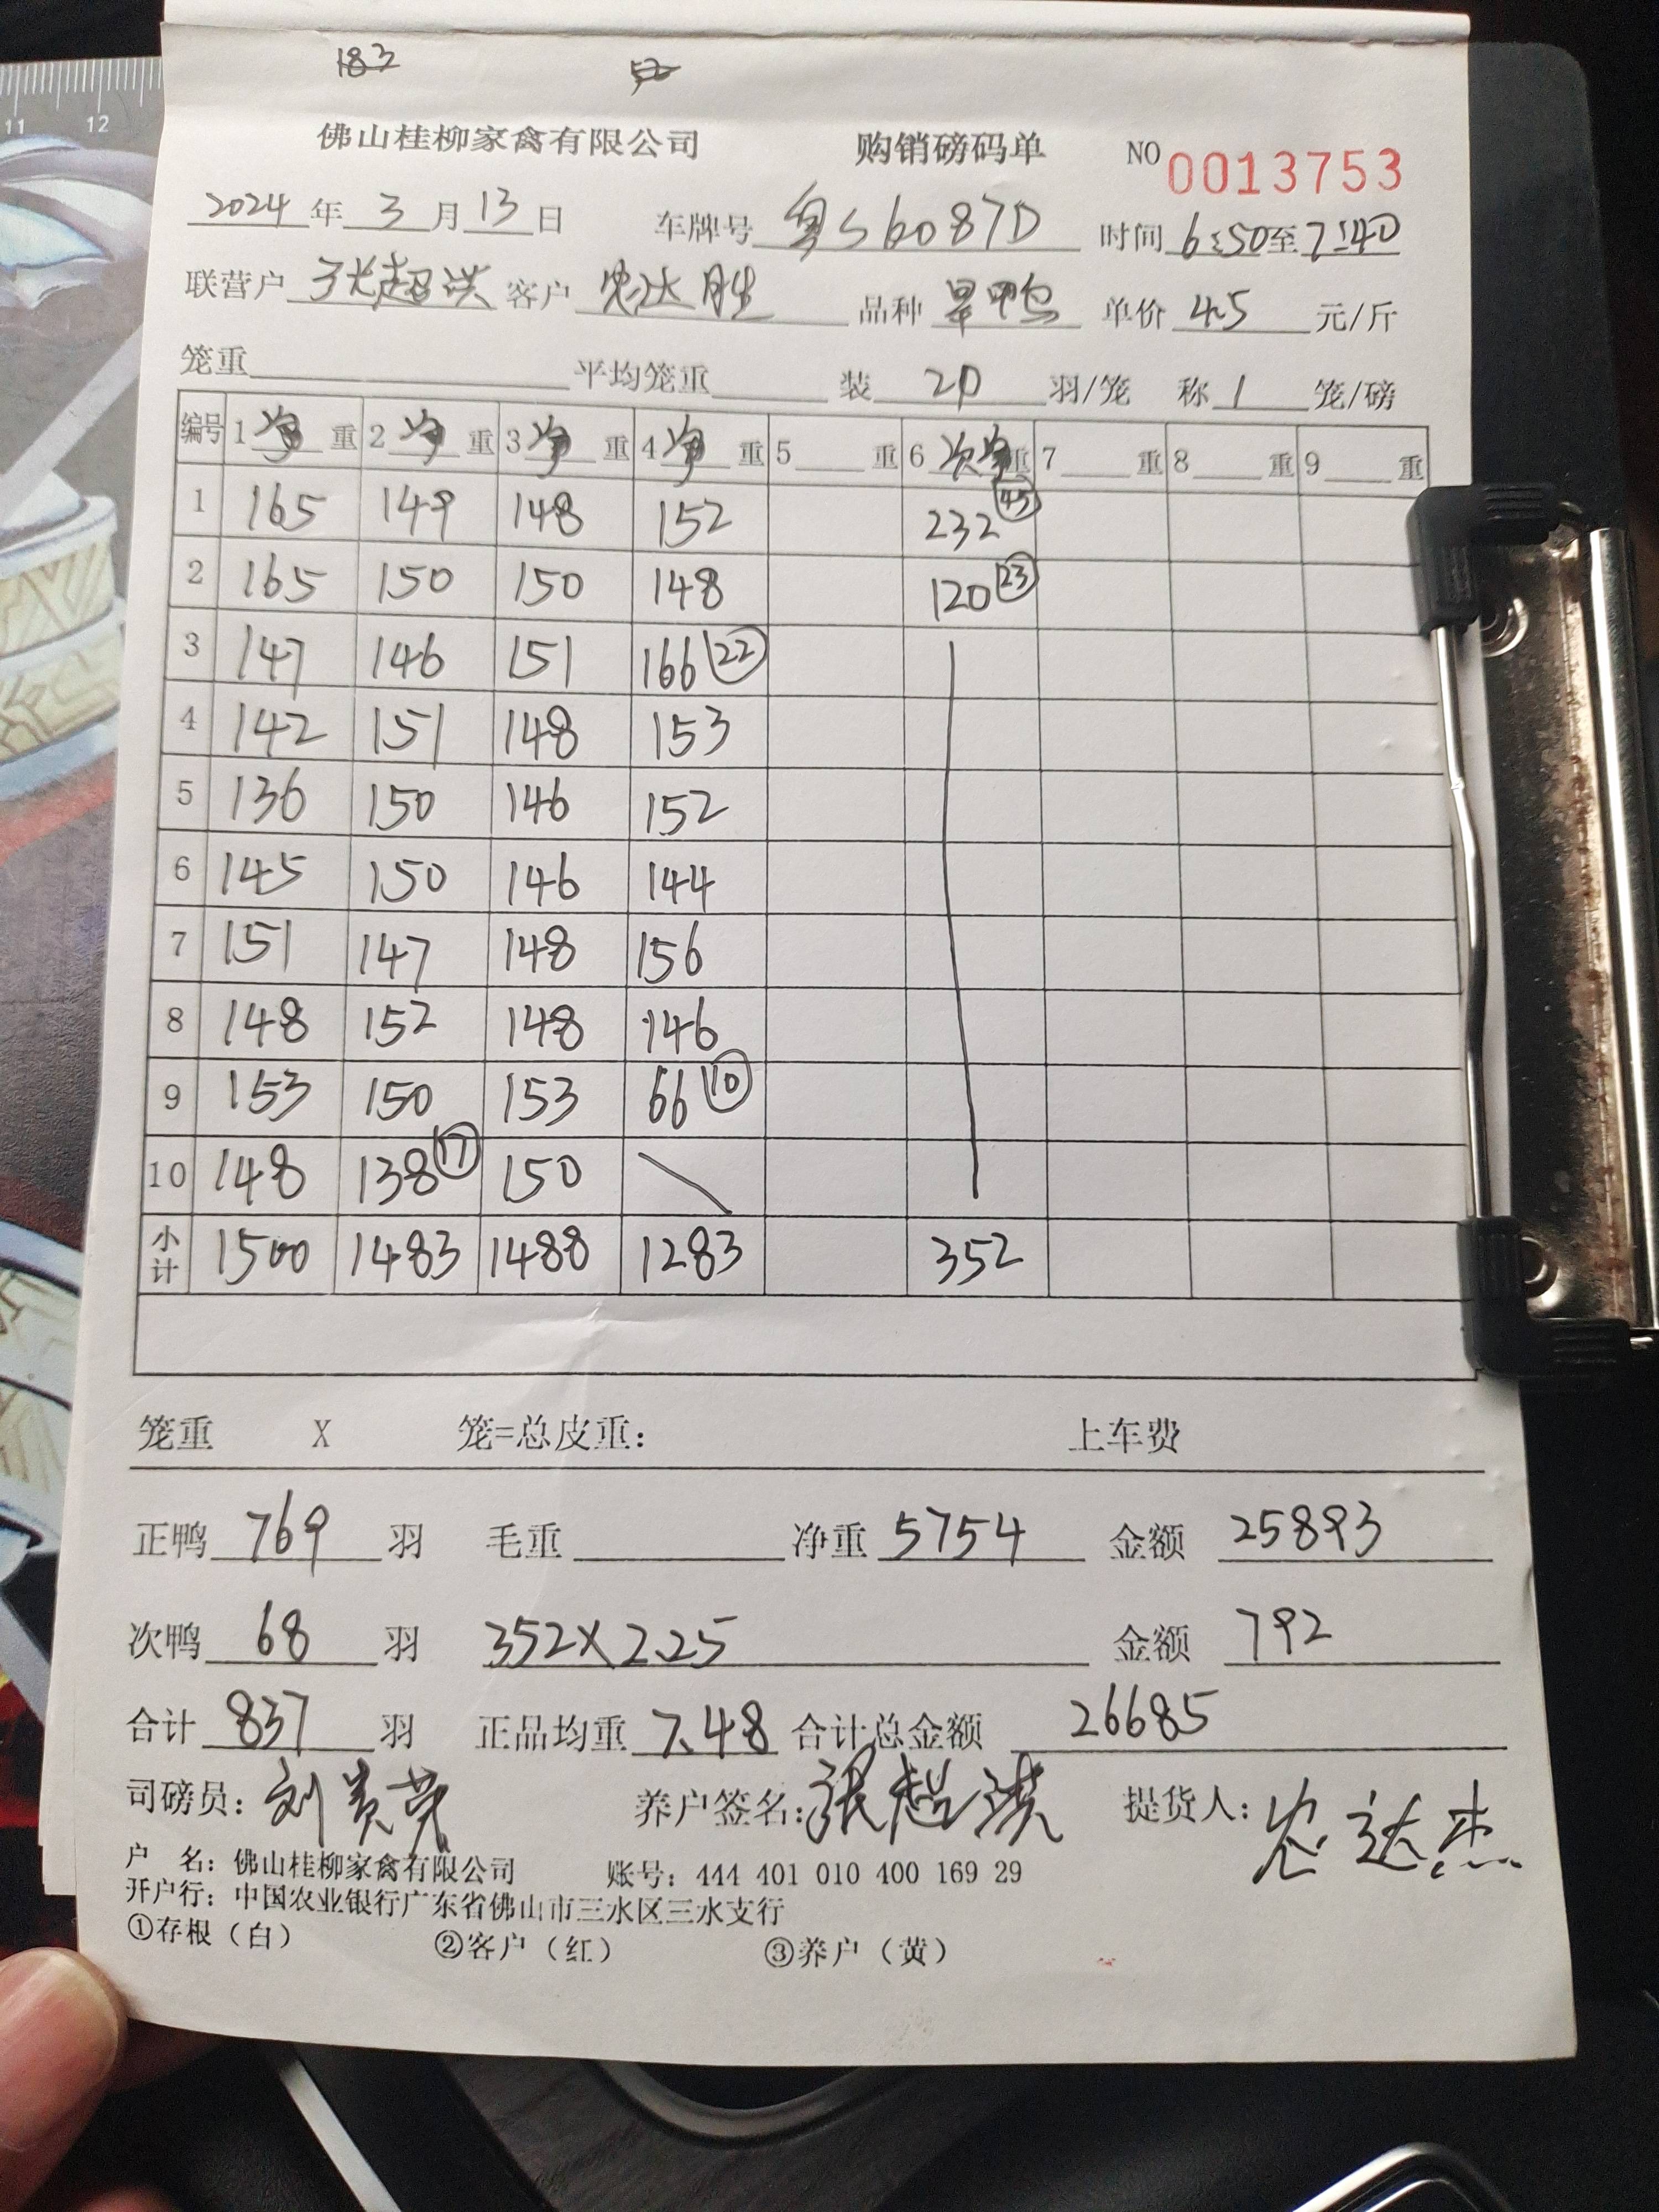 183
佛山桂柳家禽有限公司 购销磅码单 NO 0013753
2024 年 3 月 13 日 车牌号 粤S6087D 时间 6:50 至 7:40
联营户 张超洪 客户 农达胜 品种 旱鸭 单价 4.5 元/斤
笼重 平均笼重 装 20 羽/笼 称 1 笼/磅
编号 1 净 重 2 净 重 3 净 重 4 净 重 5 重 6 次净 重 7 重 8 重 9 重
1 165 149 148 152 232 45
2 165 150 150 148 120 23
3 147 146 151 166 22
4 142 151 148 153
5 136 150 146 152
6 145 150 146 144
7 151 147 148 156
8 148 152 148 146
9 153 150 153 66 10
10 148 138 17 150
小计 1500 1483 1488 1283 352
笼重 X 笼=总皮重： 上车费
正鸭 769 羽 毛重 净重 5754 金额 25893
次鸭 68 羽 352×2.25 金额 792
合计 837 羽 正品均重 7.48 合计总金额 26685
司磅员：刘贵荣 养户签名：张超洪 提货人：农达杰
户 名：佛山桂柳家禽有限公司 账号：444 401 010 400 169 29
开户行：中国农业银行广东省佛山市三水区三水支行
①存根（白） ②客户（红） ③养户（黄）
11 12